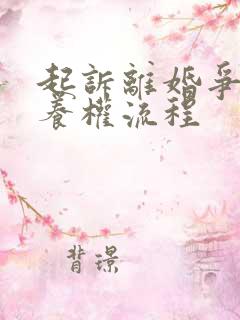 起訴離婚爭
養權流程
背景